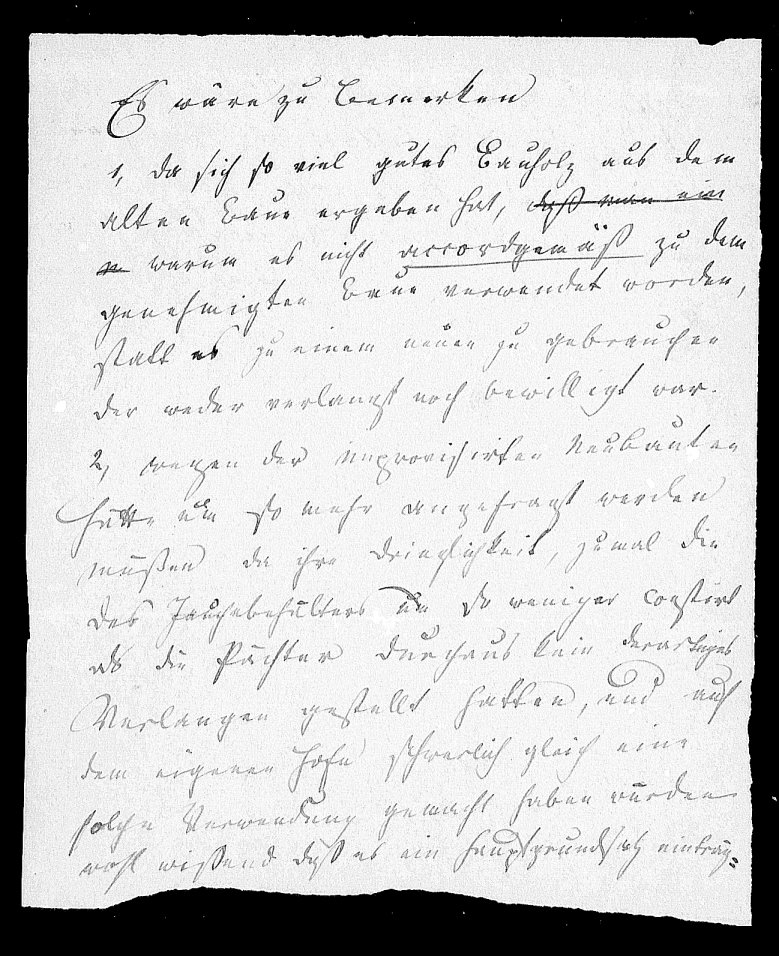 Es wäre zu bemerken
1, da sich so viel gutes Bauholz aus dem
alten Baue ergeben hat, daß man ein
n warum es nicht accordgemäß zu dem
genehmigten Baue verwendet worden,
statt es zu einem neuen zu gebrauchen
der weder verlangt noch bewilligt war.
2, wegen der improvisirten Neubauten
hätte um so mehr angefragt werden
müßen da ihre Dringlichkeit, zumal die
des Jauchebehälters um so weniger constirt
als die Pächter durchaus kein derartiges
Verlangen gestellt hatten, und auf
dem eigenen Hofe schwerlich gleich eine
solche Verwendung gemacht haben würden
wohl wißend daß es ein Hauptgrundsatz einträg=